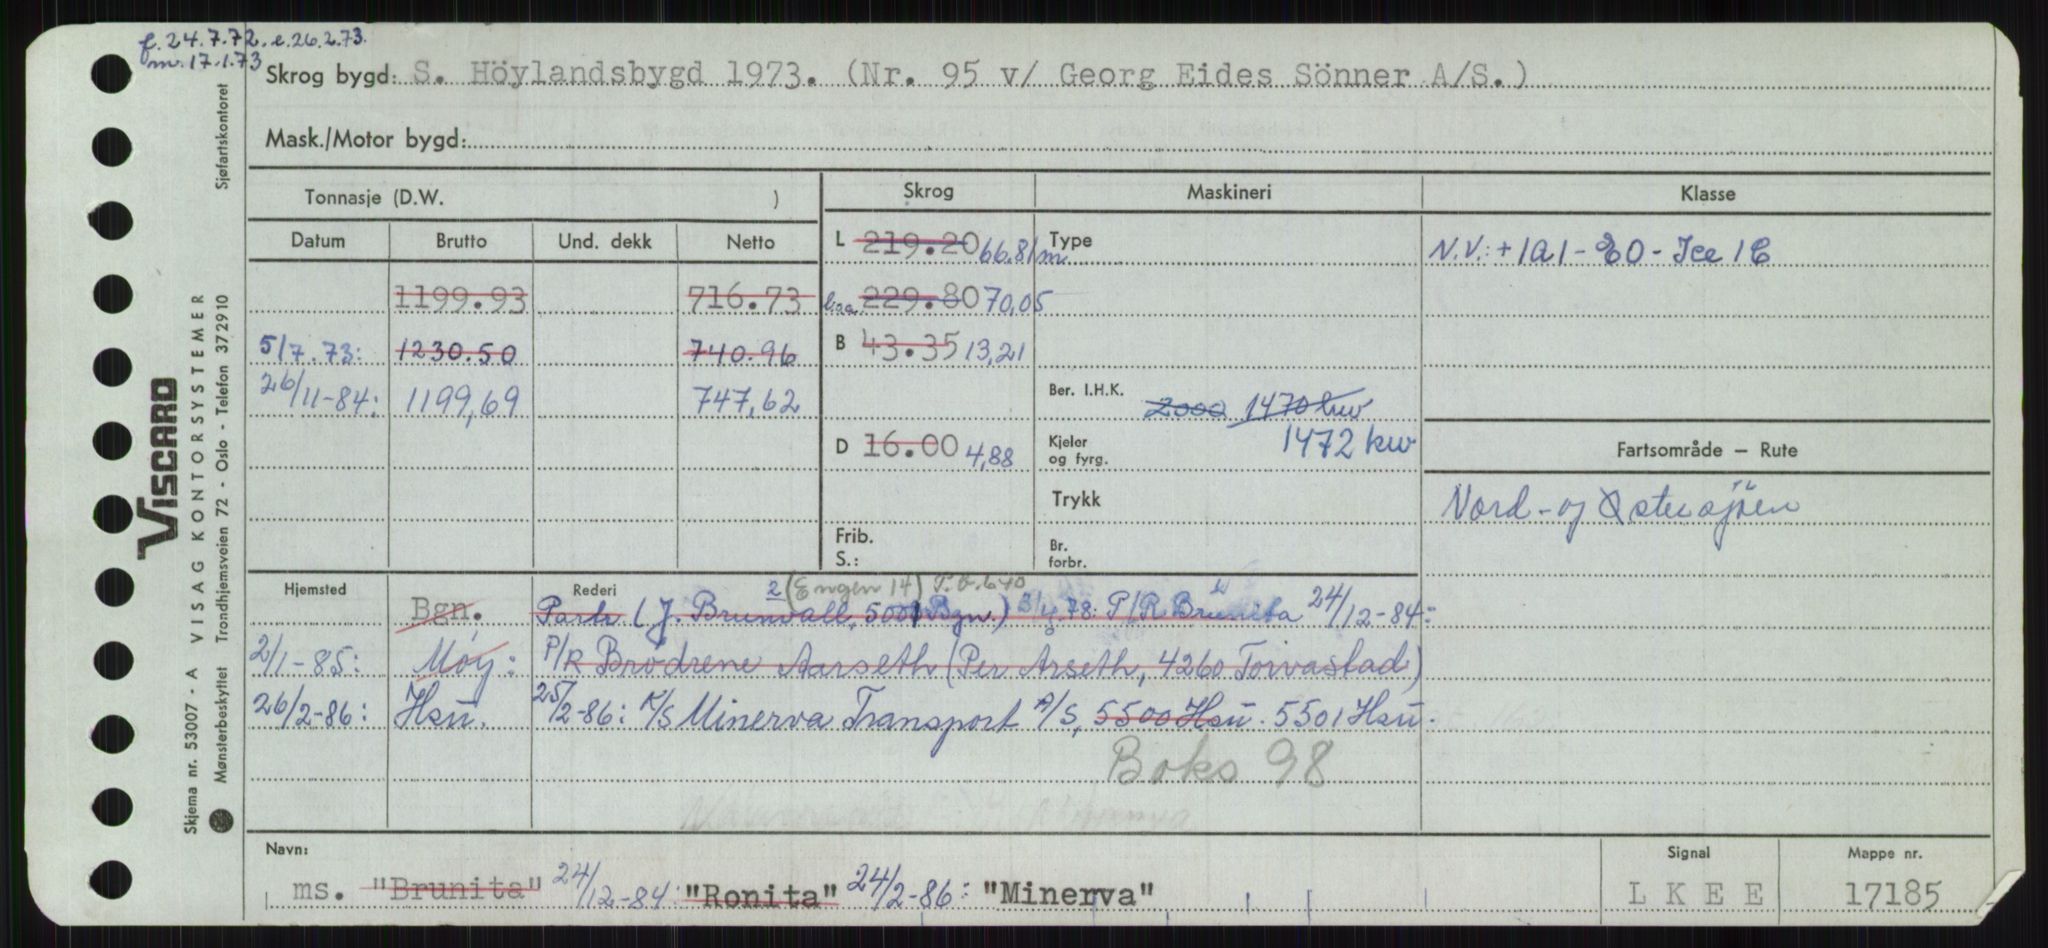 f. 24.7.72. e. 26.2.73.
m. 17.1.73
Skrog bygd: S. Höylandsbygd 1973. (Nr. 95 v/ Georg Eides Sönner A/S.)
Mask./Motor bygd:
Sjøfartskontoret
VISCARD
VISAG KONTORSYSTEMER
Trondhjemsveien 72 - Oslo - Telefon 372910
Skjema nr. 53007 - A
Mønsterbeskyttet
Tonnasje (D.W. )
Datum Brutto Und. dekk Netto
1199.93 716.73
5/7.73: 1230.50 740.96
26/11-84: 1199,69 747,62
Skrog
L 219.20 66.81 m
loa 229.80 70,05
B 43.35 13,21
D 16.00 4,88
Frib.
S.:
Maskineri
Type
Ber. I.H.K. 2000 1470 kw
Kjeler
og fyrg. 1472 kw
Trykk
Br.
forbr.
Klasse
N.V.: + 1A1 - E0 - Ice 1C
Fartsområde – Rute
Nord- og Østersjøen
Hjemsted Rederi 2 (Engen 14)
Bgn. Partr. (J. Brunvall, 5001 Bgn.) 3/4.78: P/R Brunita 24/12-84:
2/1-85: Møy: P/R Brødrene Aarseth (Per Arseth, 4260 Torvastad)
26/2-86: Hsu. 25/2-86: K/S Minerva Transport A/S, 5500 Hsu. 5501 Hsu.
Boks 98
Navn:
ms. "Brunita" 24/12-84: "Ronita" 24/2-86: "Minerva"
Signal
LKEE
Mappe nr.
17185